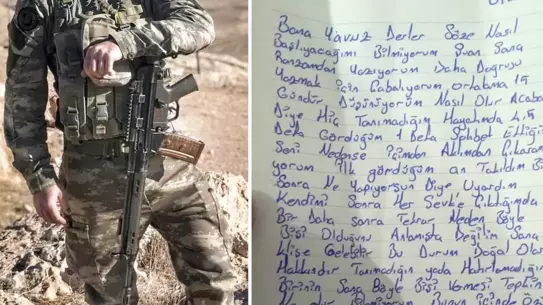 Bana Yavuz Derler Söze Nasıl
Başlıyacağımı Bilmiyorum Şuan Sana
Ranzamdan Yazıyorum Daha Doğrusu
Yazmak için Çabalıyorum ortalama 15
Gündür Düşünüyorum Nasıl Olur Acaba
Diye Hiç Tanımadığım Hayatımda 4,5
Defa Gördüğüm 1 Defa Sohbet Ettiğim
Seni Nedense içimden Aklımdan Çıkaramı
yorum ilk gördüğüm an Takıldım
Sonra Ne Yapıyorsun Diye Uyardım
Kendimi Sonra Her Sevke Çıktığımda
Bir Daha sonra Tekrar Neden Böyle
Bişi Olduğunu Anlamışta Değilim Sana
Klişe Gelebilir Bu Durum Doğal Olar
Hakkındır Tanımadığın yada Hatırlamadığın
Birinin Sana Böyle Bişi Vermesi